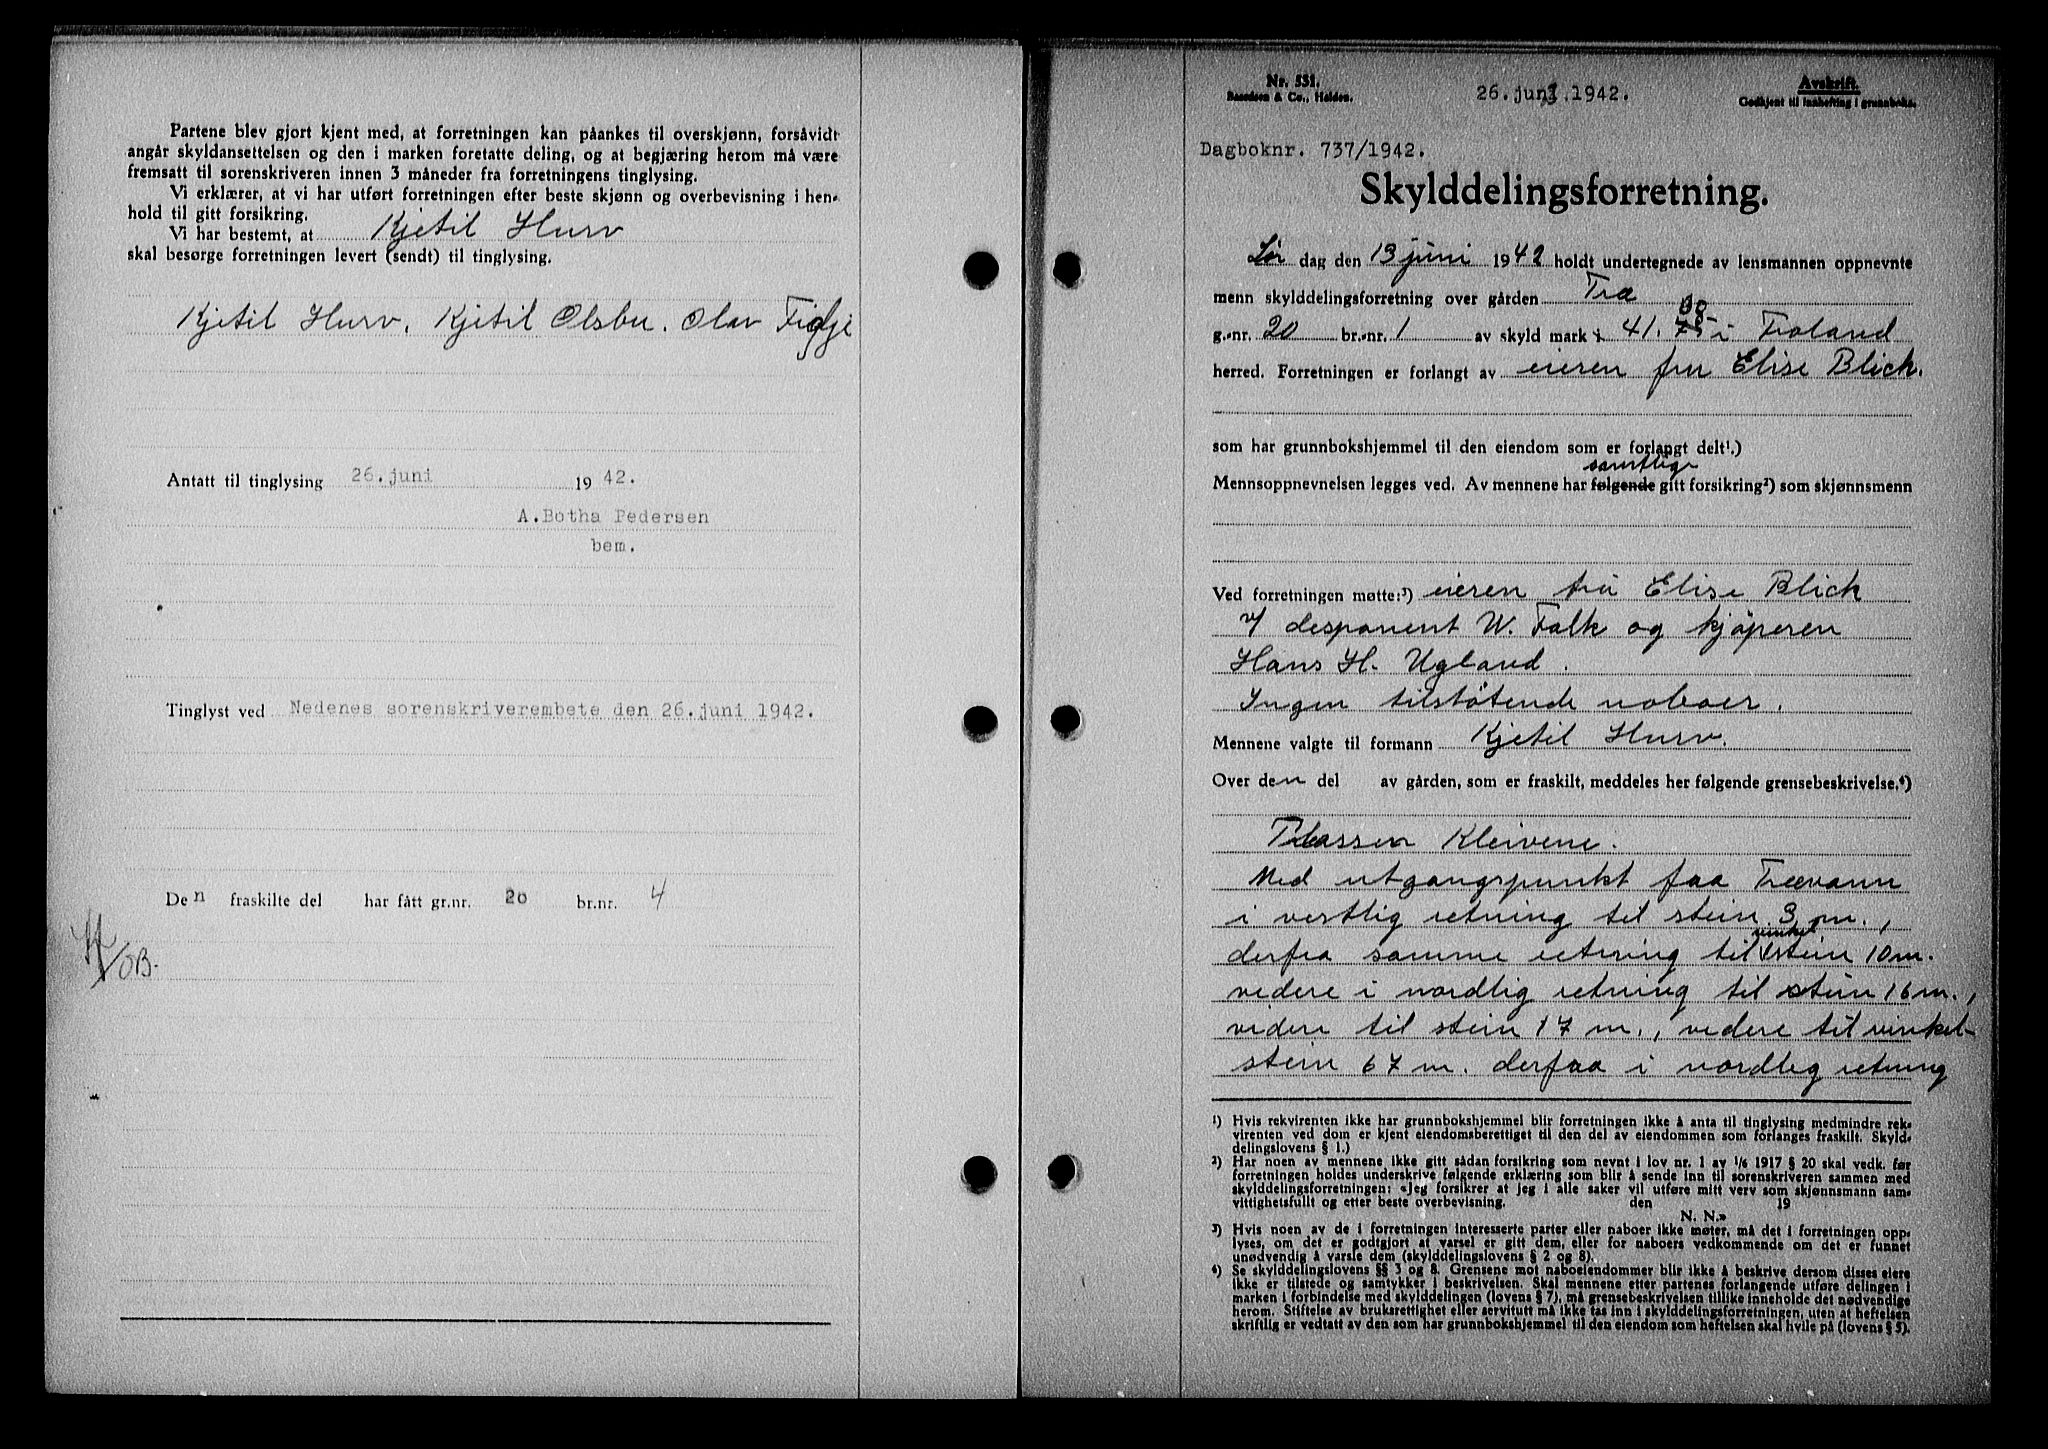 Partene blev gjort kjent med, at forretningen kan påankes til overskjønn, forsåvidt
angår skyldansettelsen og den i marken foretatte deling, og at begjæring herom må være
fremsatt til sorenskriveren innen 3 måneder fra forretningens tinglysing.
Vi erklærer, at vi har utført forretningen efter beste skjønn og overbevisning i hen-
hold til gitt forsikring.
Vi har bestemt, at Kjetil Hurv
skal besørge forretningen levert (sendt) til tinglysing.
Kjetil Hurv. Kjetil Olsbu. Olav
Antatt til tinglysing 26.juni 19 42.
A.Botha Pedersen
bem.
Tinglyst ved Nedenes sorenskriverembete den 26.juni 1942.
Den fraskilte del har fått gr.nr. 20 br.nr. 4
/OB.
Nr. 531.
Baardsen & Co., Halden.
26.juni.1942.
Avskrift.
Godkjent til innhefting i grunnboka.
Dagboknr. 737/1942.
Skylddelingsforretning.
Lør dag den 13 juni 1942 holdt undertegnede av lensmannen oppnevnte
menn skylddelingsforretning over gården Træ
g.-nr. 20 br.-nr. 1 av skyld mark 41. i Froland
herred. Forretningen er forlangt av eieren fru Elise Blick.
som har grunnbokshjemmel til den eiendom som er forlangt delt¹.)
samtlige
Mennsoppnevnelsen legges ved. Av mennene har følgende gitt forsikring²) som skjønnsmenn
Ved forretningen møtte:³) eieren fru Elise Blick
v/ desponent W. Falk og kjöperen
Hans H. Ugland.
Ingen tilstötende naboer.
Mennene valgte til formann Kjetil Hurv.
Over den del av gården, som er fraskilt, meddeles her følgende grensebeskrivelse.⁴)
Kleivene.
Med utgangspunkt fra Trævann
i vestlig retning til stein 3 m.,
derfra samme retning til vinkelstein 10 m.
videre i nordlig retning til stein 16 m.,
videre til stein 17 m., videre til vinkel-
stein 67 m. derfra i nordleg retning
¹) Hvis rekvirenten ikke har grunnbokshjemmel blir forretningen ikke å anta til tinglysing medmindre rek-
virenten ved dom er kjent eiendomsberettiget til den del av eiendommen som forlanges fraskilt. Skyld-
delingslovens § 1.)
²) Har noen av mennene ikke gitt sådan forsikring som nevnt i lov nr. 1 av 1/6 1917 § 20 skal vedk. før
forretningen holdes underskrive følgende erklæring som blir å sende inn til sorenskriveren sammen med
skylddelingsforretningen: «Jeg forsikrer at jeg i alle saker vil utføre mitt verv som skjønnsmann sam-
vittighetsfullt og etter beste overbevisning. den 19
N. N.»
³) Hvis noen av de i forretningen interesserte parter eller naboer ikke møter, må det i forretningen opp-
lyses, om det er godtgjort at varsel er gitt dem, eller for naboers vedkommende om det er funnet
unødvendig å varsle dem (skylddelingslovens § 2 og 8).
⁴) Se skylddelingslovens §§ 3 og 8. Grensene mot naboeiendommer blir ikke å beskrive dersom disses eiere
ikke er tilstede og samtykker i beskrivelsen. Skal mennene etter partenes forlangende utføre delingen i
marken i forbindelse med skylddelingen (lovens § 7), må grensebeskrivelsen tillike inneholde det nødvendige
herom. Stiftelse av bruksrettighet eller servitutt må ikke tas inn i skylddelingsforretningen, uten at heftelsen
skriftlig er vedtatt av den som har grunnbokshjemmel til den eiendom som heftelsen skal hvile på (lovens § 5).